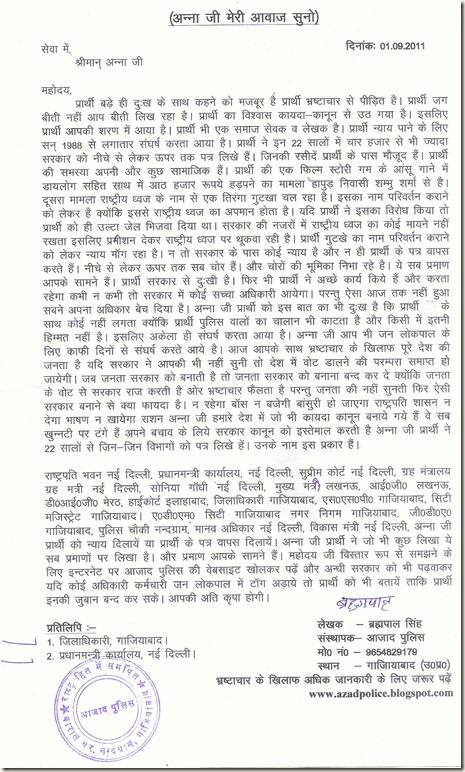 (अन्ना जी मेरी आवाज सुनो)
सेवा में,
दिनांकः 01.09.2011
श्रीमान् अन्ना जी
महोदय,
प्रार्थी बड़े ही दुःख के साथ कहने को मजबूर है प्रार्थी भ्रष्टाचार से पीड़ित है। प्रार्थी जग
बीती नहीं आप बीती लिख रहा है। प्रार्थी का विश्वास कायदा–कानून से उठ गया है। इसलिए
प्रार्थी आपकी शरण में आया है। प्रार्थी भी एक समाज सेवक व लेखक है। प्रार्थी न्याय पाने के लिए
सन् 1988 से लगातार संघर्ष करता आया है। प्रार्थी ने इन 22 सालों में चार हजार से भी ज्यादा
सरकार को नीचे से लेकर ऊपर तक पत्र लिखें हैं। जिनकी रसीदें प्रार्थी के पास मौजूद हैं। प्रार्थी
की समस्या अपनी और कुछ सामाजिक हैं। प्रार्थी की एक फिल्म स्टोरी गम के आंसू गाने में
डायलोग सहित साथ में आठ हजार रूपये हड़पने का मामला हापुड़ निवासी शम्भु शर्मा से है।
दूसरा मामला राष्ट्रीय ध्वज के नाम से एक तिरंगा गुटखा चल रहा है। इसका नाम परिवर्तन कराने
को लेकर है क्योंकि इससे राष्ट्रीय ध्वज का अपमान होता है। यदि प्रार्थी ने इसका विरोध किया तो
प्रार्थी को ही उल्टा जेल भिजवा दिया था। सरकार की नजरों में राष्ट्रीय ध्वज का कोई मायने नहीं
रखता इसलिए प्रमीशन देकर राष्ट्रीय ध्वज पर थूकवा रही है। प्रार्थी गुटखे का नाम परिवर्तन कराने
को लेकर न्याय माँग रहा है। न तो सरकार के पास कोई न्याय है और न ही प्रार्थी के पत्र वापस
करते हैं। नीचे से लेकर ऊपर तक सब चोर हैं। और चोरों की भूमिका निभा रहे है। ये सब प्रमाण
आपके सामने हैं। प्रार्थी सरकार से दुःखी है। फिर भी प्रार्थी ने अच्छे कार्य किये हैं और करता
रहेगा कभी न कभी तो सरकार में कोई सच्चा अधिकारी आयेगा। परन्तु ऐसा आज तक नहीं हुआ
सबने अपना अधिकार बेच दिया है। अन्ना जी प्रार्थी को इस बात का भी दुःख है कि प्रार्थी के
साथ कोई नहीं लगता क्योंकि प्रार्थी पुलिस वालों का चालान भी काटता है और किसी में इतनी
हिम्मत नहीं है। इसलिए अकेला ही संघर्ष करता आया है। अन्ना जी आप भी जन लोकपाल के
लिए काफी दिनों से संघर्ष करते आये है। आज आपके साथ भ्रष्टाचार के खिलाफ पूरे देश की
जनता है यदि सरकार ने आपकी भी नहीं सुनी तो देश में वोट डालने की परम्परा समाप्त हो
जायेगी। जब जनता सरकार को बनाती है तो जनता सरकार को बनाना बन्द कर दे क्योंकि जनता
के वोट से सरकार राज करती है ओर भ्रष्टाचार फैलता है परन्तु जनता की नहीं सुनती फिर ऐसी
सरकार बनाने से क्या फायदा है। न रहेगा बॉस न बजेगी बांसुरी हो जाएगा राष्ट्रपति शासन न
देगा भाषन न खायेगा राशन अन्ना जी हमारे देश में जो भी कायदा कानून बनाये गये हैं वे सब
खुन्नटी पर टंगे हैं अपने बचाव के लिये सरकार कानून को इस्तेमाल करती है अन्ना जी प्रार्थी ने
22 सालों से जिन–जिन विभागों को पत्र लिखे हें। उनके नाम इस प्रकार हैं।
राष्ट्रपति भवन नई दिल्ली, प्रधानमन्त्री कार्यालय, नई दिल्ली, सुप्रीम कोर्ट नई दिल्ली, ग्रह मंत्रालय
ग्रह मन्त्री नई दिल्ली, सोनिया गाँधी नई दिल्ली, मुख्य मंत्री लखनऊ, आई०जी० लखनऊ,
डी०आई०जी० मेरठ, हाईकोर्ट इलाहाबाद, जिलाधिकारी गाजियाबाद, एस०एस०पी० गाजियाबाद, सिटी
मजिस्ट्रेट गाजियाबाद। ए०डी०एम० सिटी गाजियाबाद नगर निगम गाजियाबाद, जी०डी०ए०
गाजियाबाद, पुलिस चौकी नन्दग्राम, मानव अधिकार नई दिल्ली, विकास मंत्री नई दिल्ली, अन्ना जी
प्रार्थी को न्याय दिलायें या प्रार्थी के पत्र वापस दिलायें। अन्ना जी प्रार्थी ने जो भी कुछ लिखा ये
सब प्रमाणों पर लिखा है। और प्रमाण आपके सामने हैं। महोदय जी विस्तार रूप से समझने के
लिए इन्टरनेट पर आजाद पुलिस की वेबसाइट खोलकर पढ़ें और अन्धी सरकार को भी पढ़वाकर
यदि कोई अधिकारी कर्मचारी जन लोकपाल में टॉग अड़ाये तो प्रार्थी को भी बतायें ताकि प्रार्थी
इनकी जुबान बन्द कर सके। आपकी अति कृपा होगी।
ब्रह्मपाल
प्रतिलिपि :–
लेखक – ब्रह्मपाल सिंह
1. जिलाधिकारी, गाजियाबाद।
संस्थापक– आजाद पुलिस
2. प्रधानमन्त्री कार्यालय, नई दिल्ली।
मो० नं० – 9654829179
स्थान – गाजियाबाद (उ०प्र०)
भ्रष्टाचार के खिलाफ अधिक जानकारी के लिए जरूर पढ़ें
www.azadpolice.blogspot.com
राष्ट्र हित में समर्पित
आजाद पुलिस